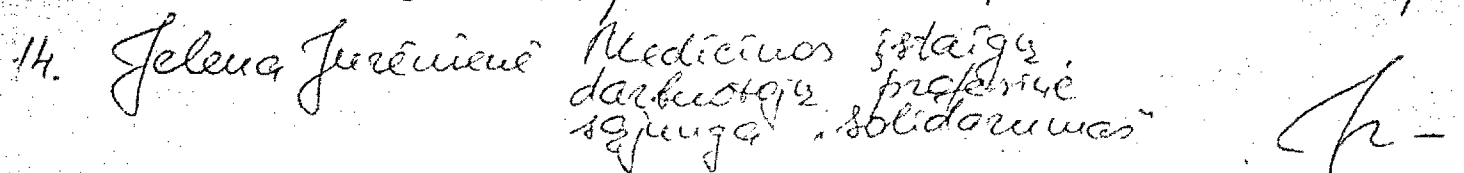 14. Jelena Jurėnienė Medicinos įstaigų
darbuotojų profesinė
sąjunga „Solidarumas“